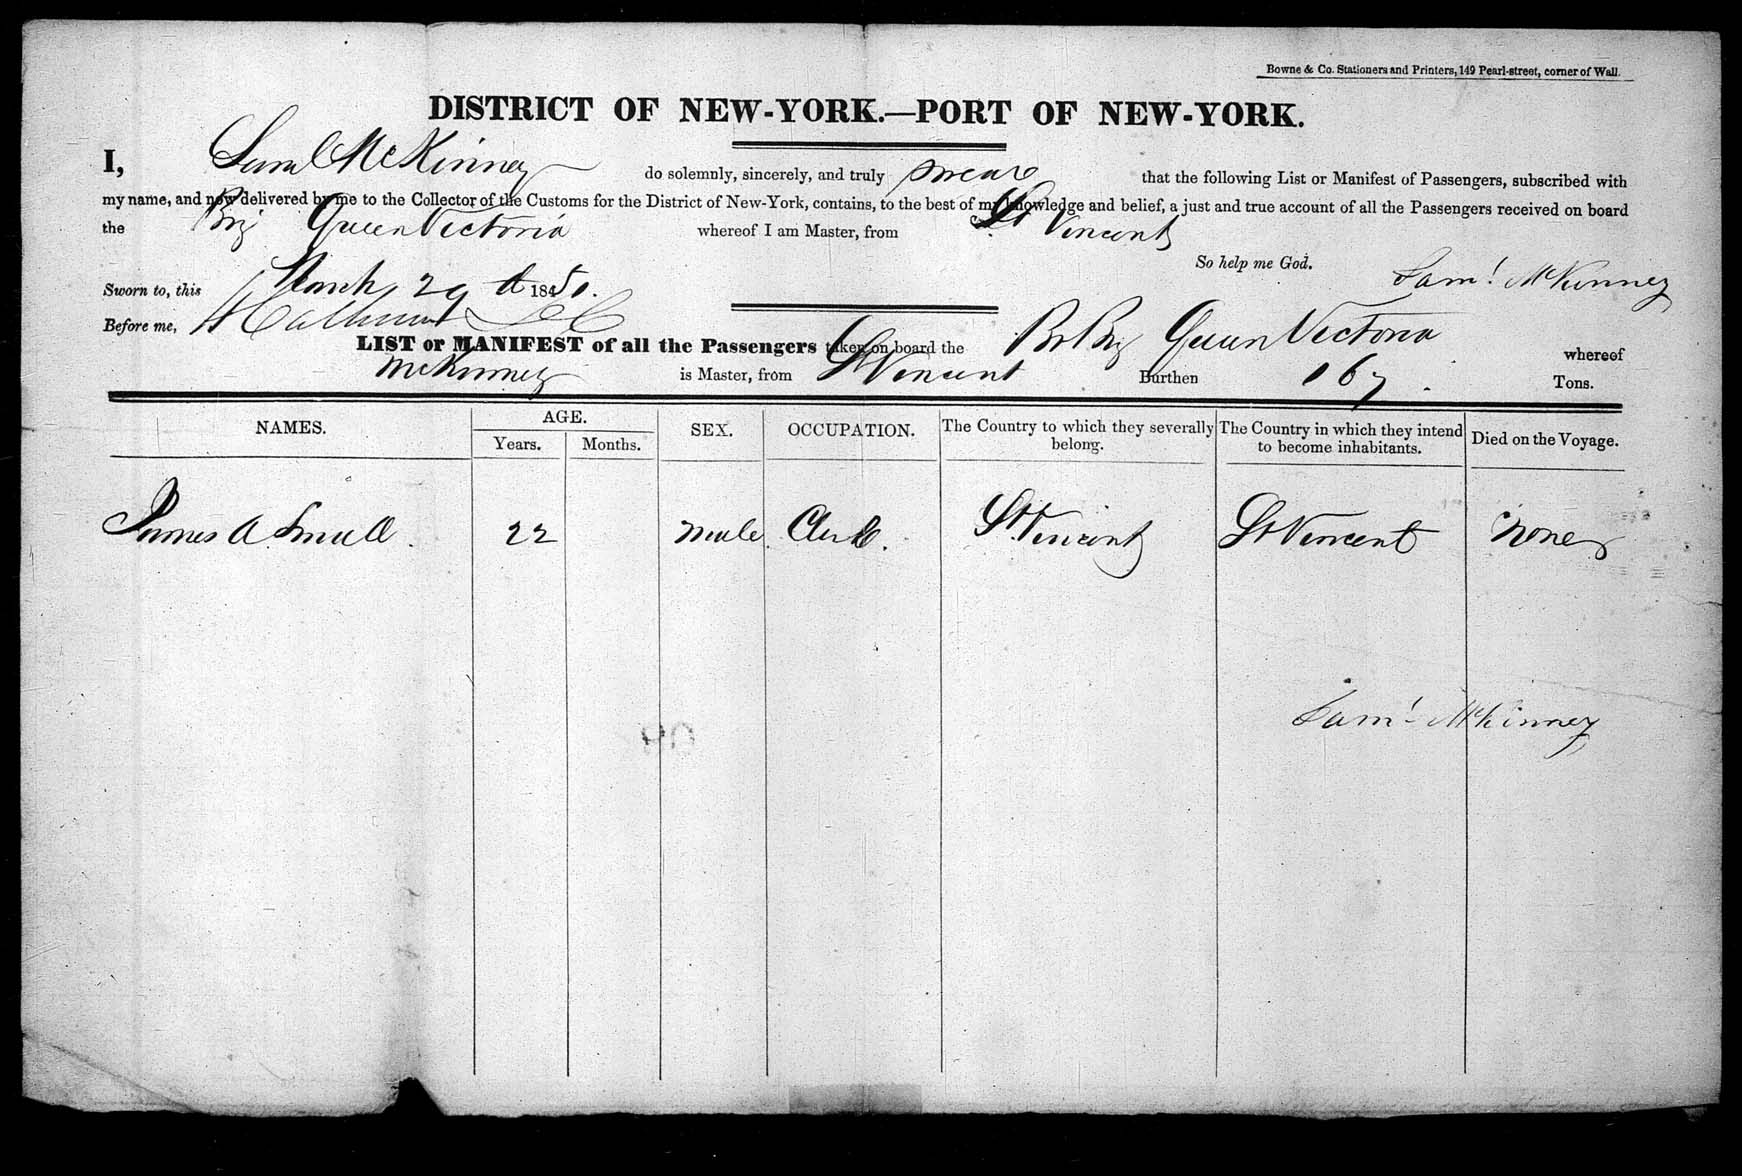 Bowne & Co. Stationers and Printers, 149 Pearl-street, corner of Wall.
DISTRICT OF NEW-YORK.—PORT OF NEW-YORK.
I, Saml McKinney do solemnly, sincerely, and truly swear that the following List or Manifest of Passengers, subscribed with
my name, and now delivered by me to the Collector of the Customs for the District of New-York, contains, to the best of my knowledge and belief, a just and true account of all the Passengers received on board
the Brig Queen Victoria whereof I am Master, from St Vincent
So help me God. Saml McKinney
Sworn to, this March 29th 1850.
Before me,
LIST or MANIFEST of all the Passengers taken on board the Br Brig Queen Victoria whereof
McKinney is Master, from St Vincent Burthen 167. Tons.
NAMES. AGE. SEX. OCCUPATION. The Country to which they severally belong. The Country in which they intend to become inhabitants. Died on the Voyage.
Years. Months.
James A Small. 22 Male Clerk. St Vincent St Vincent None
Saml McKinney